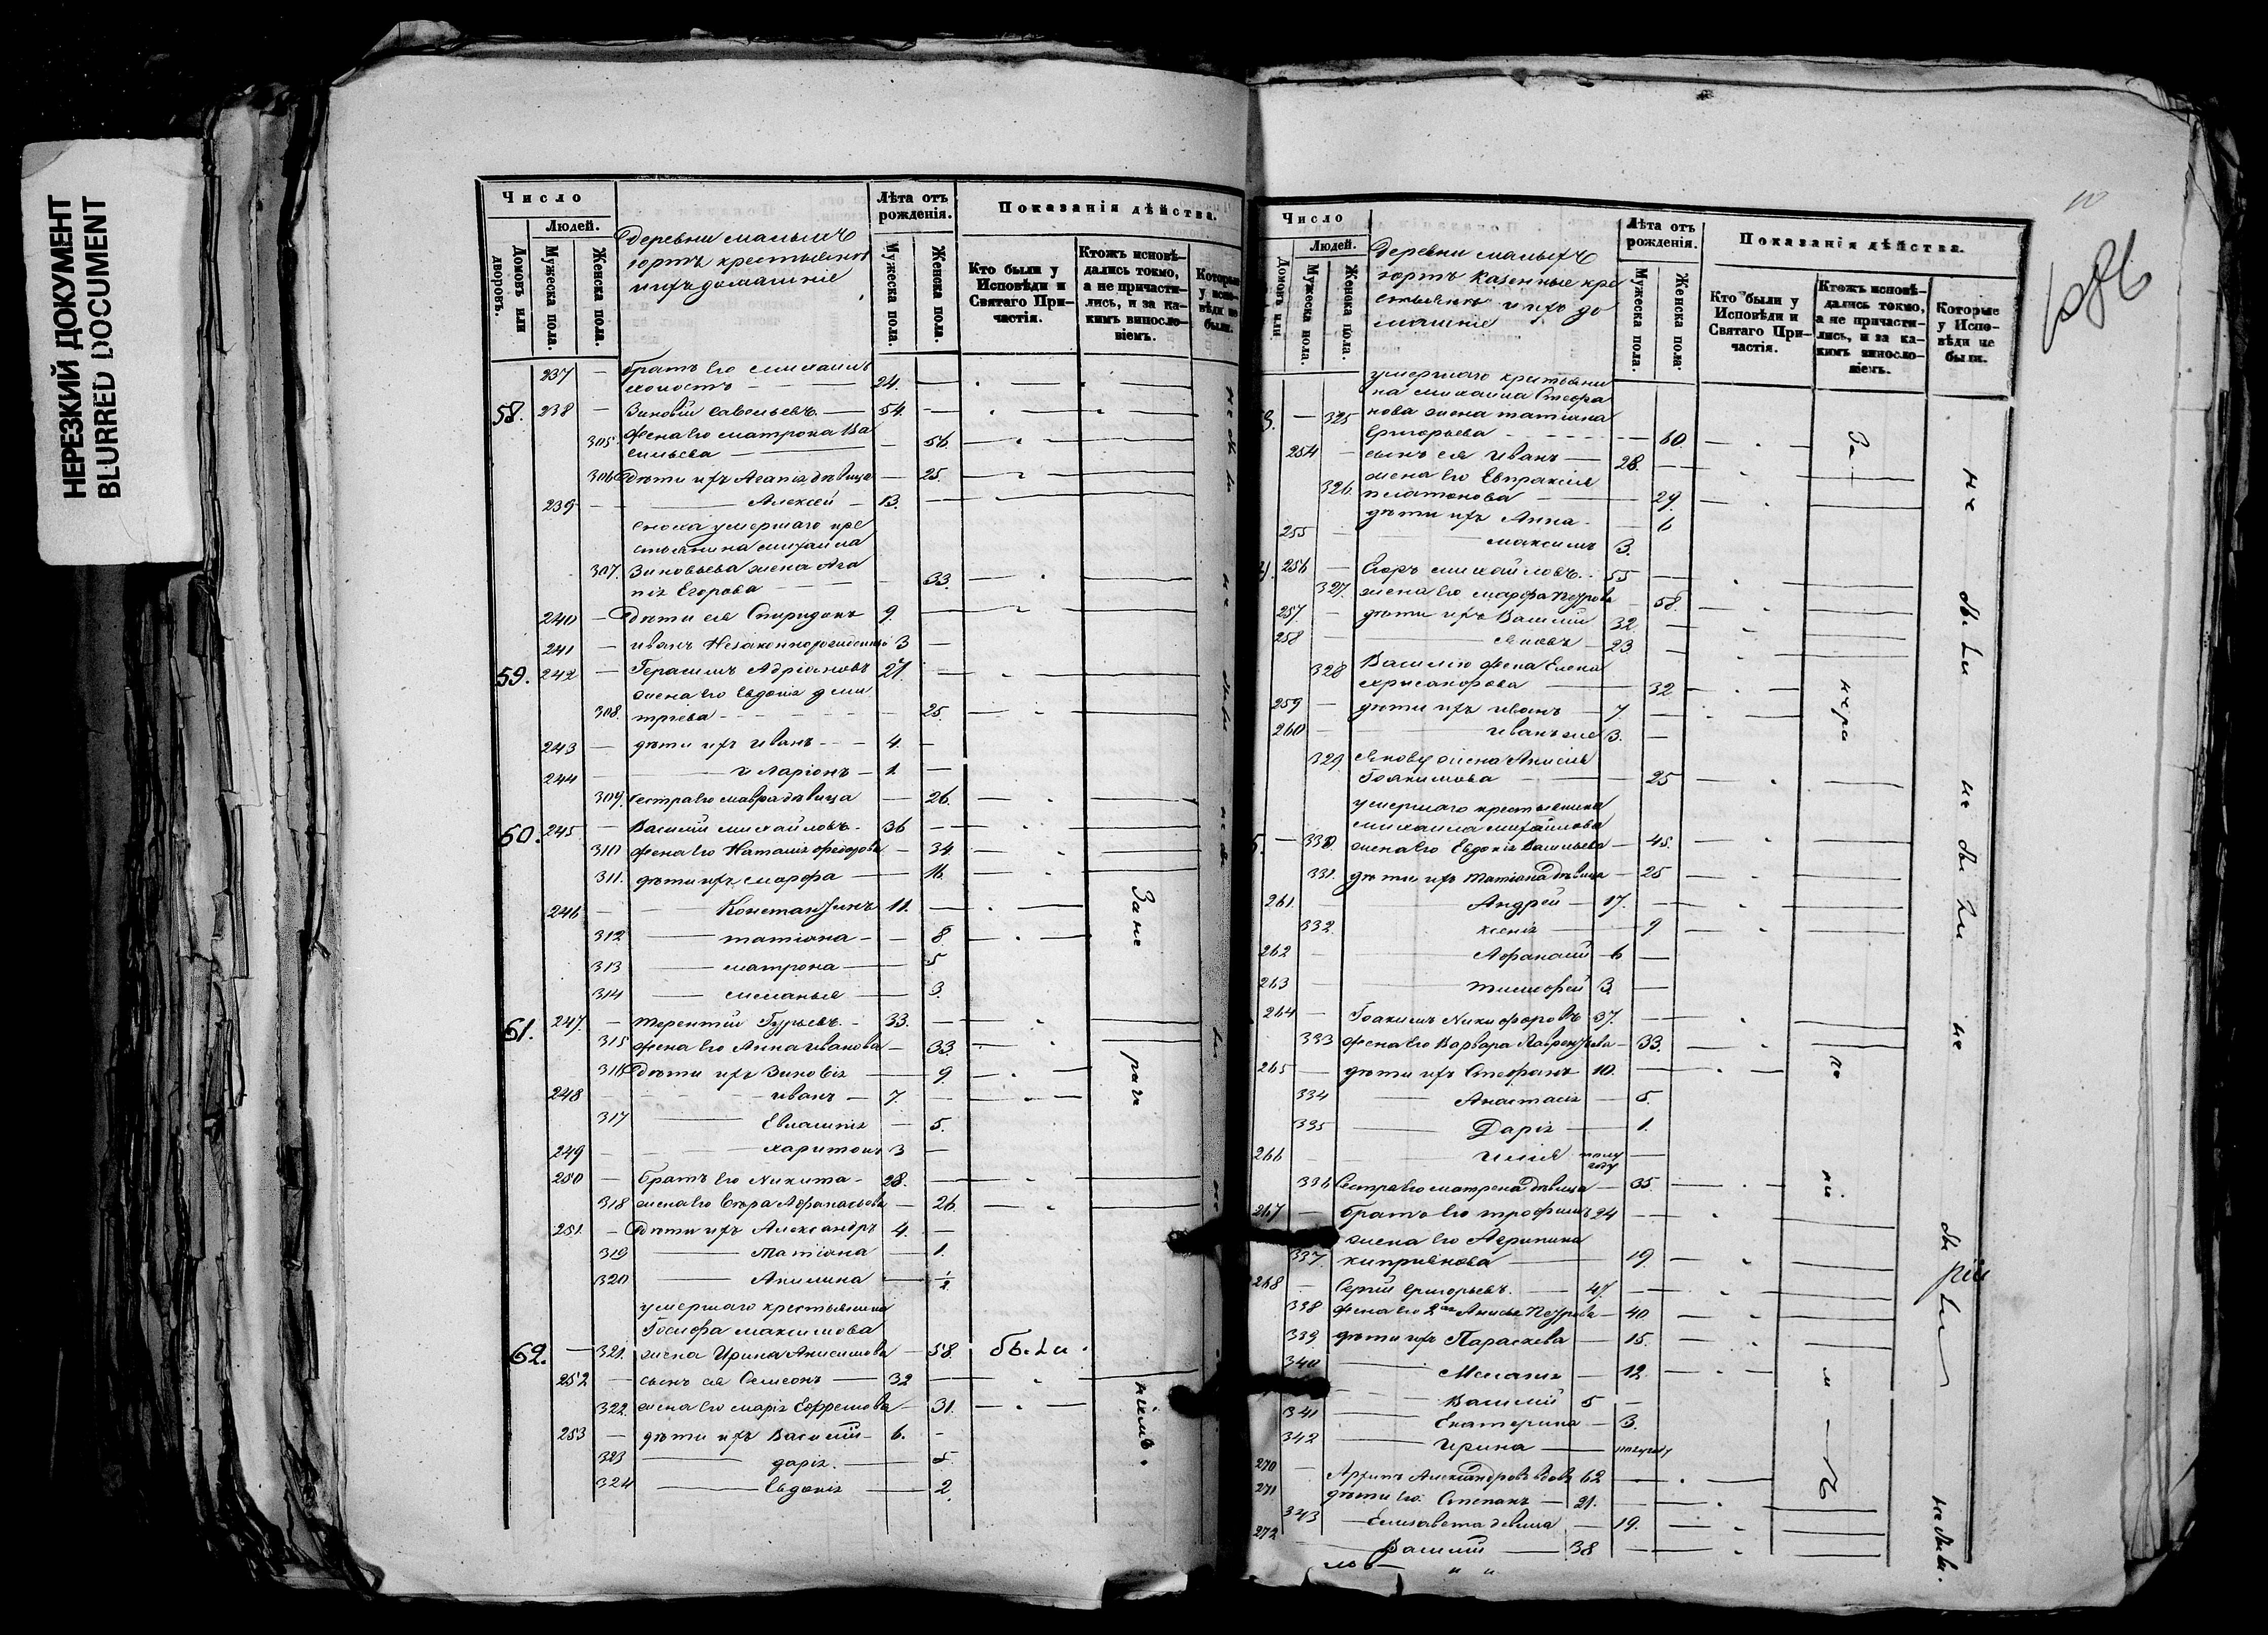 НЕРЕЗКИЙ ДОКУМЕНТ
BLURRED DOCUMENT
Число
Людей.
Домовъ или дворовъ.
Мужеска пола.
Женска пола.
Деревни малыхъ
гортъ крестьяне
и ихъ домашніе
Лѣта отъ рожденія.
Мужеска пола.
Женска пола.
Показанія дѣйства.
Кто были у Исповѣди и Святаго Причастія.
Ктожъ исповѣдались токмо, а не причастились, и за какимъ винословіемъ.
Которые у исповѣди не были.
237 — братъ его михаилъ
холостъ — 24.
58. 238 — Зиновій Савельевъ — 54.
305 жена его матрона Ва
сильева — 56.
306 Дѣти ихъ Агапія дѣвица — 25.
239 — Алексей — 13.
сноха умершаго кре
стьянина михаила
307. Зиновьева жена Ага
пія Егорова — 33.
240 — Дѣти ея Спиридонъ 9.
241 — иванъ Незаконнорожденный 3 —
59. 242 — Герасимъ Адріановъ 27.
жена его Евдокія дми
308. тріева — 25.
243 — дѣти ихъ иванъ — 4. —
244 — иларіонъ — 1 —
309. сестра его мавра дѣвица — 26.
60. 245 — Василій михайловъ — 36
310 жена его Наталія федорова — 34.
311. дѣти ихъ марфа — 16.
246 — Константинъ 11.
312 — татіана — 8.
313 — матрона — 5
314 — меланья — 3.
61. 247. — терентій Гурьевъ — 33.
315 жена его Анна иванова — 33.
316 Дѣти ихъ Зиновія — 9.
248 — иванъ — 7.
317 — Евлампія — 5.
249 — харитонъ 3 —
250 — братъ его Никита — 28.
318 жена его Вѣра Афанасьева — 26.
251. — Дѣти ихъ Александръ 4. —
319 — татіана — 1.
320 — Акилина — 1/2
умершаго крестьянина
Іосифа максимова
62. — 321. жена Ирина Анисимова — 58. бы.ли.
252 — сынъ ея Симеонъ — 32
322. жена его марія Ефремова — 31.
253 — дѣти ихъ Василій — 6. —
323 — дарія. — 5.
324 — Евдокія — 2.
За не
раче
ніемъ.
Число
Людей.
Домовъ или
Мужеска пола.
Женска пола.
Деревни малыхъ
гортъ казенные кре
стьяне и ихъ до
машніе
Лѣта отъ рожденія.
Мужеска пола.
Женска пола.
Показанія дѣйства.
Кто были у Исповѣди и Святаго Причастія.
Ктожъ исповѣдались токмо, а не причастились, и за какимъ винословіемъ.
Которые у Исповѣди не были.
умершаго крестьяни
на михаила Стефа
— 325 нова жена татіана
Григорьева — 60.
254 — сынъ ея иванъ — 28.
жена его Евпраксія
326. платонова — 29.
дѣти ихъ Анна — 6
255 — максимъ 3.
256 — Егоръ михайловъ. 55
327. жена его марфа петрова 58.
257. — дѣти ихъ Василій 32.
258 — Яковъ 23.
328 Василію жена Елена
хрисанфова — 32
259 — дѣти ихъ иванъ — 7
260 — иванъ же 3. —
329. Якову жена Анисія
Іоакимова — 25
умершаго крестьянина
михаила михайлова
— 330. жена его Евдокія Васильева — 45.
331. дѣти ихъ татіана дѣвица — 25
261. — Андрей — 17.
332. ксенія — 9
262 — Афанасій 6 —
263 — тимофей 3. —
264 — Іоакимъ Никифоровъ 37.
333 жена его Варвара Лаврентьева — 33.
265 — дѣти ихъ Стефанъ 10.
334 — Анастасія — 5.
335 — Дарія — 1.
266 — илія полугоду —
336 Сестра его матрена дѣвица — 35.
267 — братъ его трофимъ 24
жена его Агрипина
337. киприянова — 19.
268 — Сергій григорьевъ. — 47.
338 жена его 2я Анисья Петрова — 40.
339. дѣти ихъ Параскева — 15.
340 — Меланія — 12.
— Василій 5 —
341 — Екатерина — 3.
342 — ирина — полугоду
270 — Архипъ Александровъ вдовъ 62
271 — дѣти его Степанъ — 21.
343 — Елизавета девица — 19.
272 — Василій — 38
не бы ли